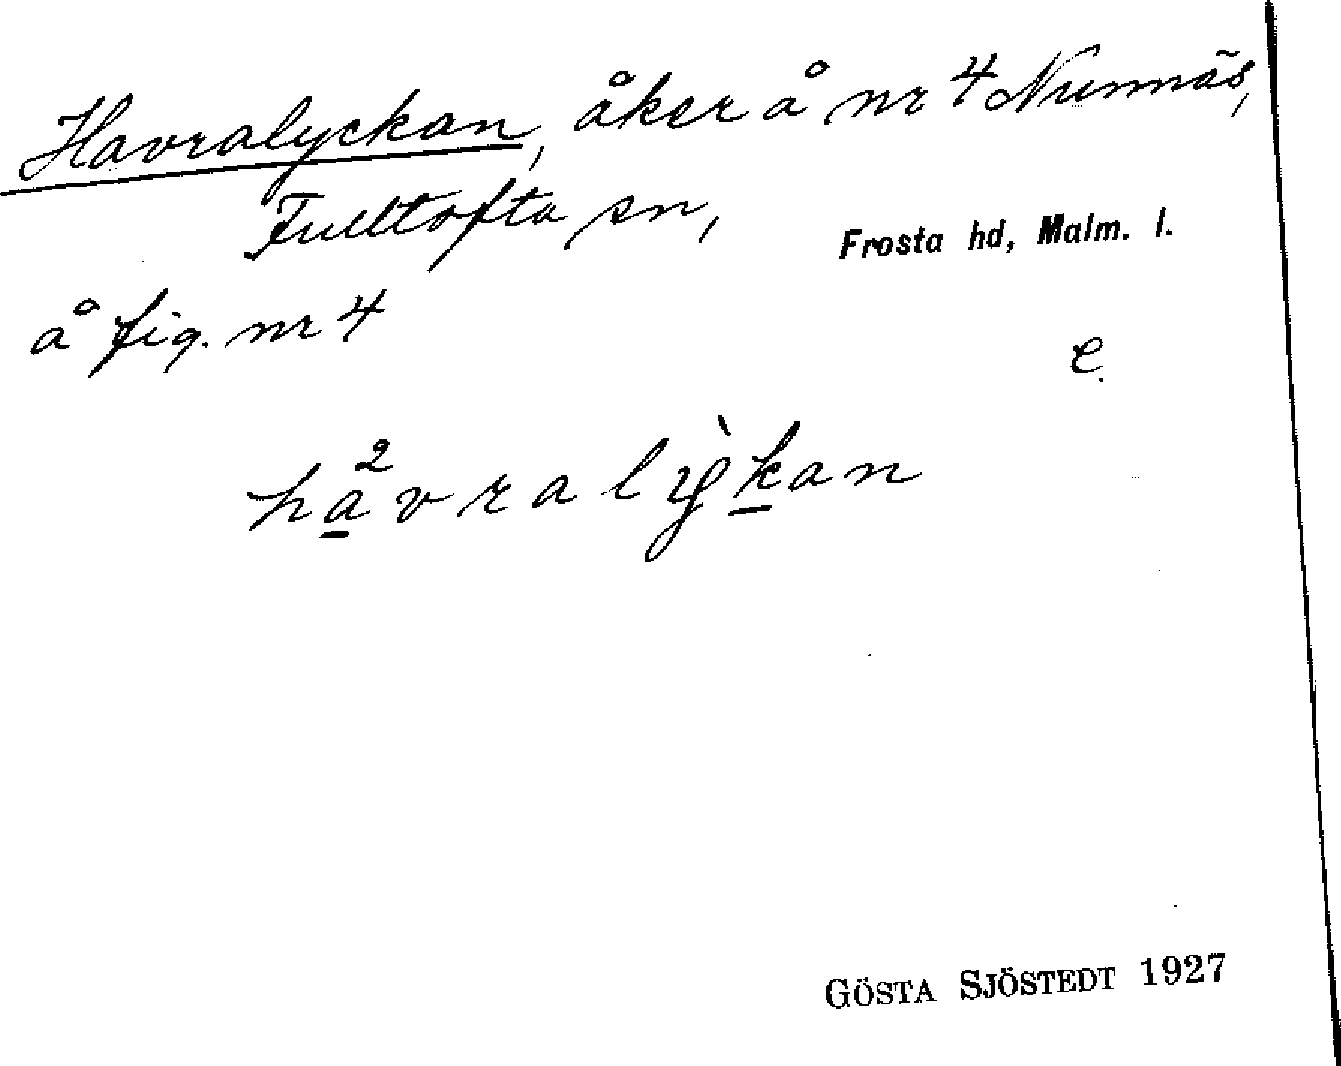 Havralyckan, åker å nr 4 Nunnäs,
Fulltofta sn, Frosta hd, Malm. l.
å fig. nr 4
e.
ha²vralỳkan
GÖSTA SJÖSTEDT 1927